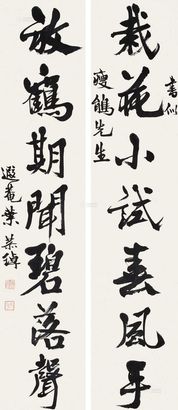 栽花小試春風手
書似
瘦鶴先生
放鶴期聞碧落聲
遐菴葉恭綽